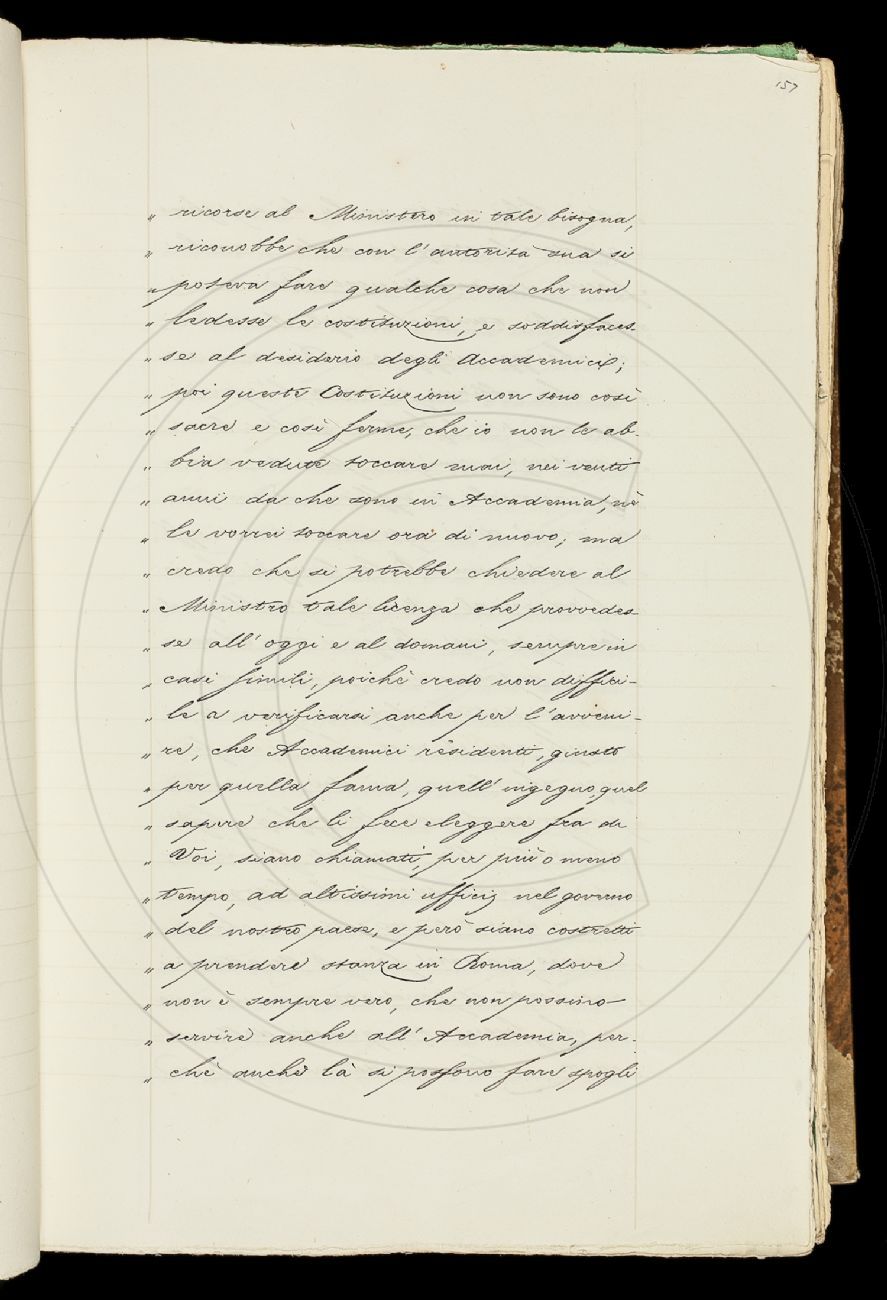 157
„ ricorse al Ministero in tale bisogna,
„ riconobbe che con l'autorità sua si
„ poteva fare qualche cosa che non
„ ledesse le costituzioni, e soddisfaces-
„ se al desiderio degli Accademici;
„ poi queste Costituzioni non sono così
„ sacre e così ferme, che io non le ab-
„ bia vedute toccare mai, nei venti
„ anni da che sono in Accademia, nè
„ le vorrei toccare ora di nuovo; ma
„ credo che si potrebbe chiedere al
„ Ministro tale licenza che provvedes-
„ se all'oggi e al domani, sempre in
„ casi simili, poichè credo non diffici-
„ le a verificarsi anche per l'avveni-
„ re, che Accademici residenti, giusto
„ per quella fama, quell'ingegno, quel
„ sapere che li fece eleggere fra di
„ Voi, siano chiamati, per più o meno
„ tempo, ad altissimi ufficij nel governo
„ del nostro paese, e però siano costretti
„ a prendere stanza in Roma, dove
„ non è sempre vero, che non possino
„ servire anche all'Accademia, per-
„ chè anche là si possono fare spogli